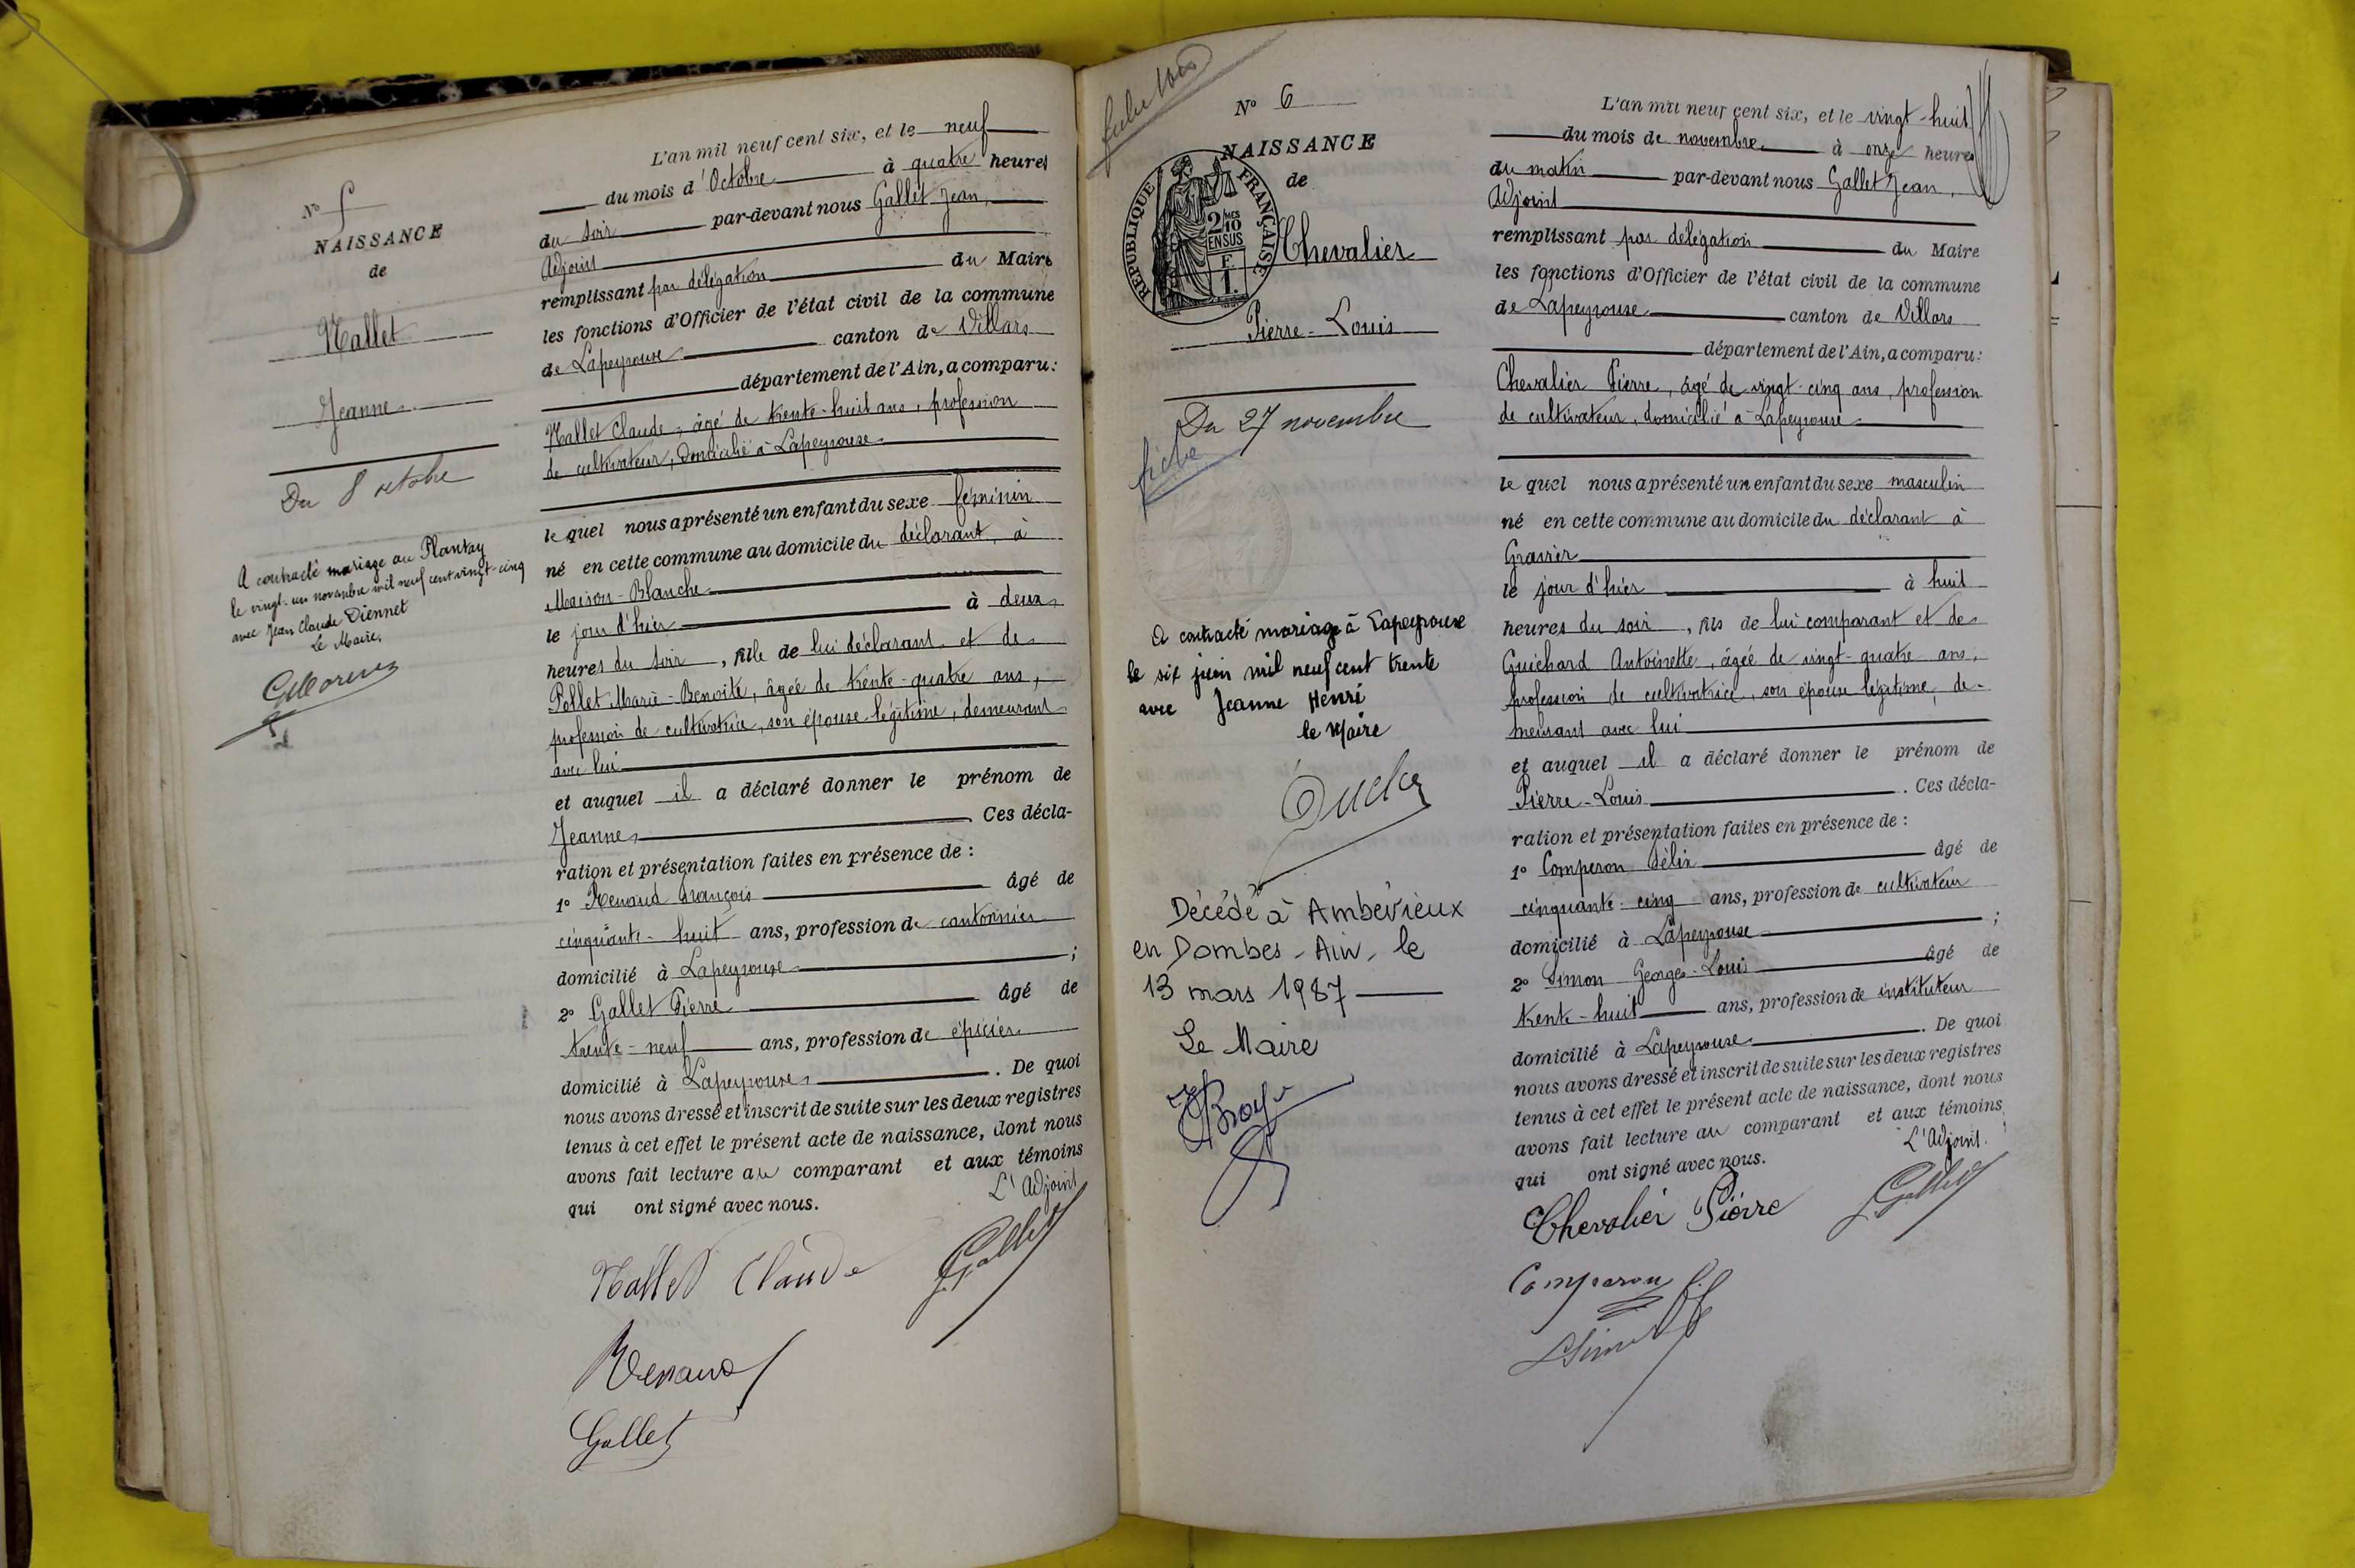 N° 5
NAISSANCE
de
Nallet
Jeanne
Du 8 octobre
A contracté mariage au Plantay
le vingt-un novembre mil neuf cent vingt-cinq
avec Jean Claude Diennet
Le Maire,
L'an mil neuf cent six, et le neuf
du mois d'Octobre à quatre heures
du soir par-devant nous Gallet Jean,
Adjoint
remplissant par délégation du Maire
les fonctions d'Officier de l'état civil de la commune
de Lapeyrouse canton de Villars
département de l'Ain, a comparu:
Nallet Claude, âgé de trente-huit ans, profession
de cultivateur, domicilié à Lapeyrouse
le quel nous a présenté un enfant du sexe féminin
né en cette commune au domicile du déclarant, à
Maison-Blanche
le jour d'hier à deux
heures du soir, fille de lui déclarant et de
Pollet Marie-Benoite, âgée de trente-quatre ans,
profession de cultivatrice, son épouse légitime, demeurant
avec lui
et auquel il a déclaré donner le prénom de
Jeanne. Ces décla-
ration et présentation faites en présence de :
1° Renaud François âgé de
cinquante-huit ans, profession de cantonnier
domicilié à Lapeyrouse ;
2° Gallet Pierre âgé de
trente-neuf ans, profession de épicier
domicilié à Lapeyrouse. De quoi
nous avons dressé et inscrit de suite sur les deux registres
tenus à cet effet le présent acte de naissance, dont nous
avons fait lecture au comparant et aux témoins
qui ont signé avec nous.
L'Adjoint
Nallet Claude
J. Gallet
Renaud
Gallet
N° 6
NAISSANCE
de
REPUBLIQUE FRANÇAISE
2 MES
10
EN SUS
F.
1.
Chevalier
Pierre-Louis
Du 27 novembre
fiche
A contracté mariage à Lapeyrouse
le six juin mil neuf cent trente
avec Jeanne Henri
le Maire
Décédé à Ambérieux
en Dombes - Ain - le
13 mars 1987
Le Maire
L'an mil neuf cent six, et le vingt-huit
du mois de novembre à onze heures
du matin par-devant nous Gallet Jean,
Adjoint
remplissant par délégation du Maire
les fonctions d'Officier de l'état civil de la commune
de Lapeyrouse canton de Villars
département de l'Ain, a comparu:
Chevalier Pierre, âgé de vingt-cinq ans, profession
de cultivateur, domicilié à Lapeyrouse
le quel nous a présenté un enfant du sexe masculin
né en cette commune au domicile du déclarant à
le jour d'hier à huit
heures du soir, fils de lui comparant et de
Guichard Antoinette, âgée de vingt-quatre ans,
profession de cultivatrice, son épouse légitime, de-
meurant avec lui
et auquel il a déclaré donner le prénom de
Pierre-Louis. Ces décla-
ration et présentation faites en présence de :
1° Comperon Félix âgé de
cinquante-cinq ans, profession de cultivateur
domicilié à Lapeyrouse ;
2° Simon Georges-Louis âgé de
trente-huit ans, profession de instituteur
domicilié à Lapeyrouse. De quoi
nous avons dressé et inscrit de suite sur les deux registres
tenus à cet effet le présent acte de naissance, dont nous
avons fait lecture au comparant et aux témoins
qui ont signé avec nous.
L'Adjoint.
Chevalier Pierre
J. Gallet
Comperon
Simon